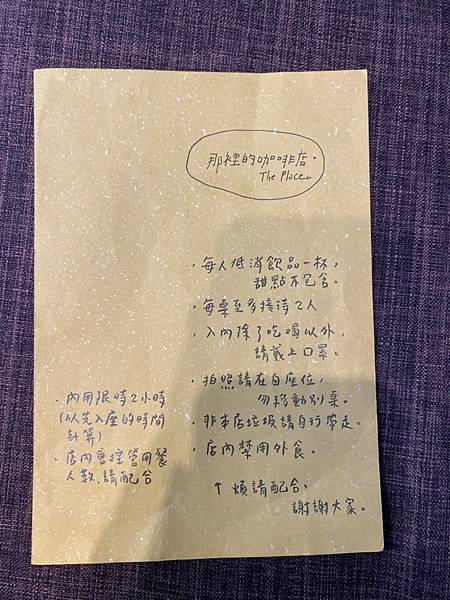 那裡的咖啡店.
The Place.
・每人低消飲品一杯，
甜點不包含。
・每桌至多接待2人
・入內除了吃喝以外，
請戴上口罩。
・拍照請在自座位，
勿移動別桌。
・非本店垃圾請自行帶走。
・店內禁用外食。
↑煩請配合，
謝謝大家。
・內用限時2小時
(以先入座的時間
計算)
・店內會控管用餐
人數，請配合